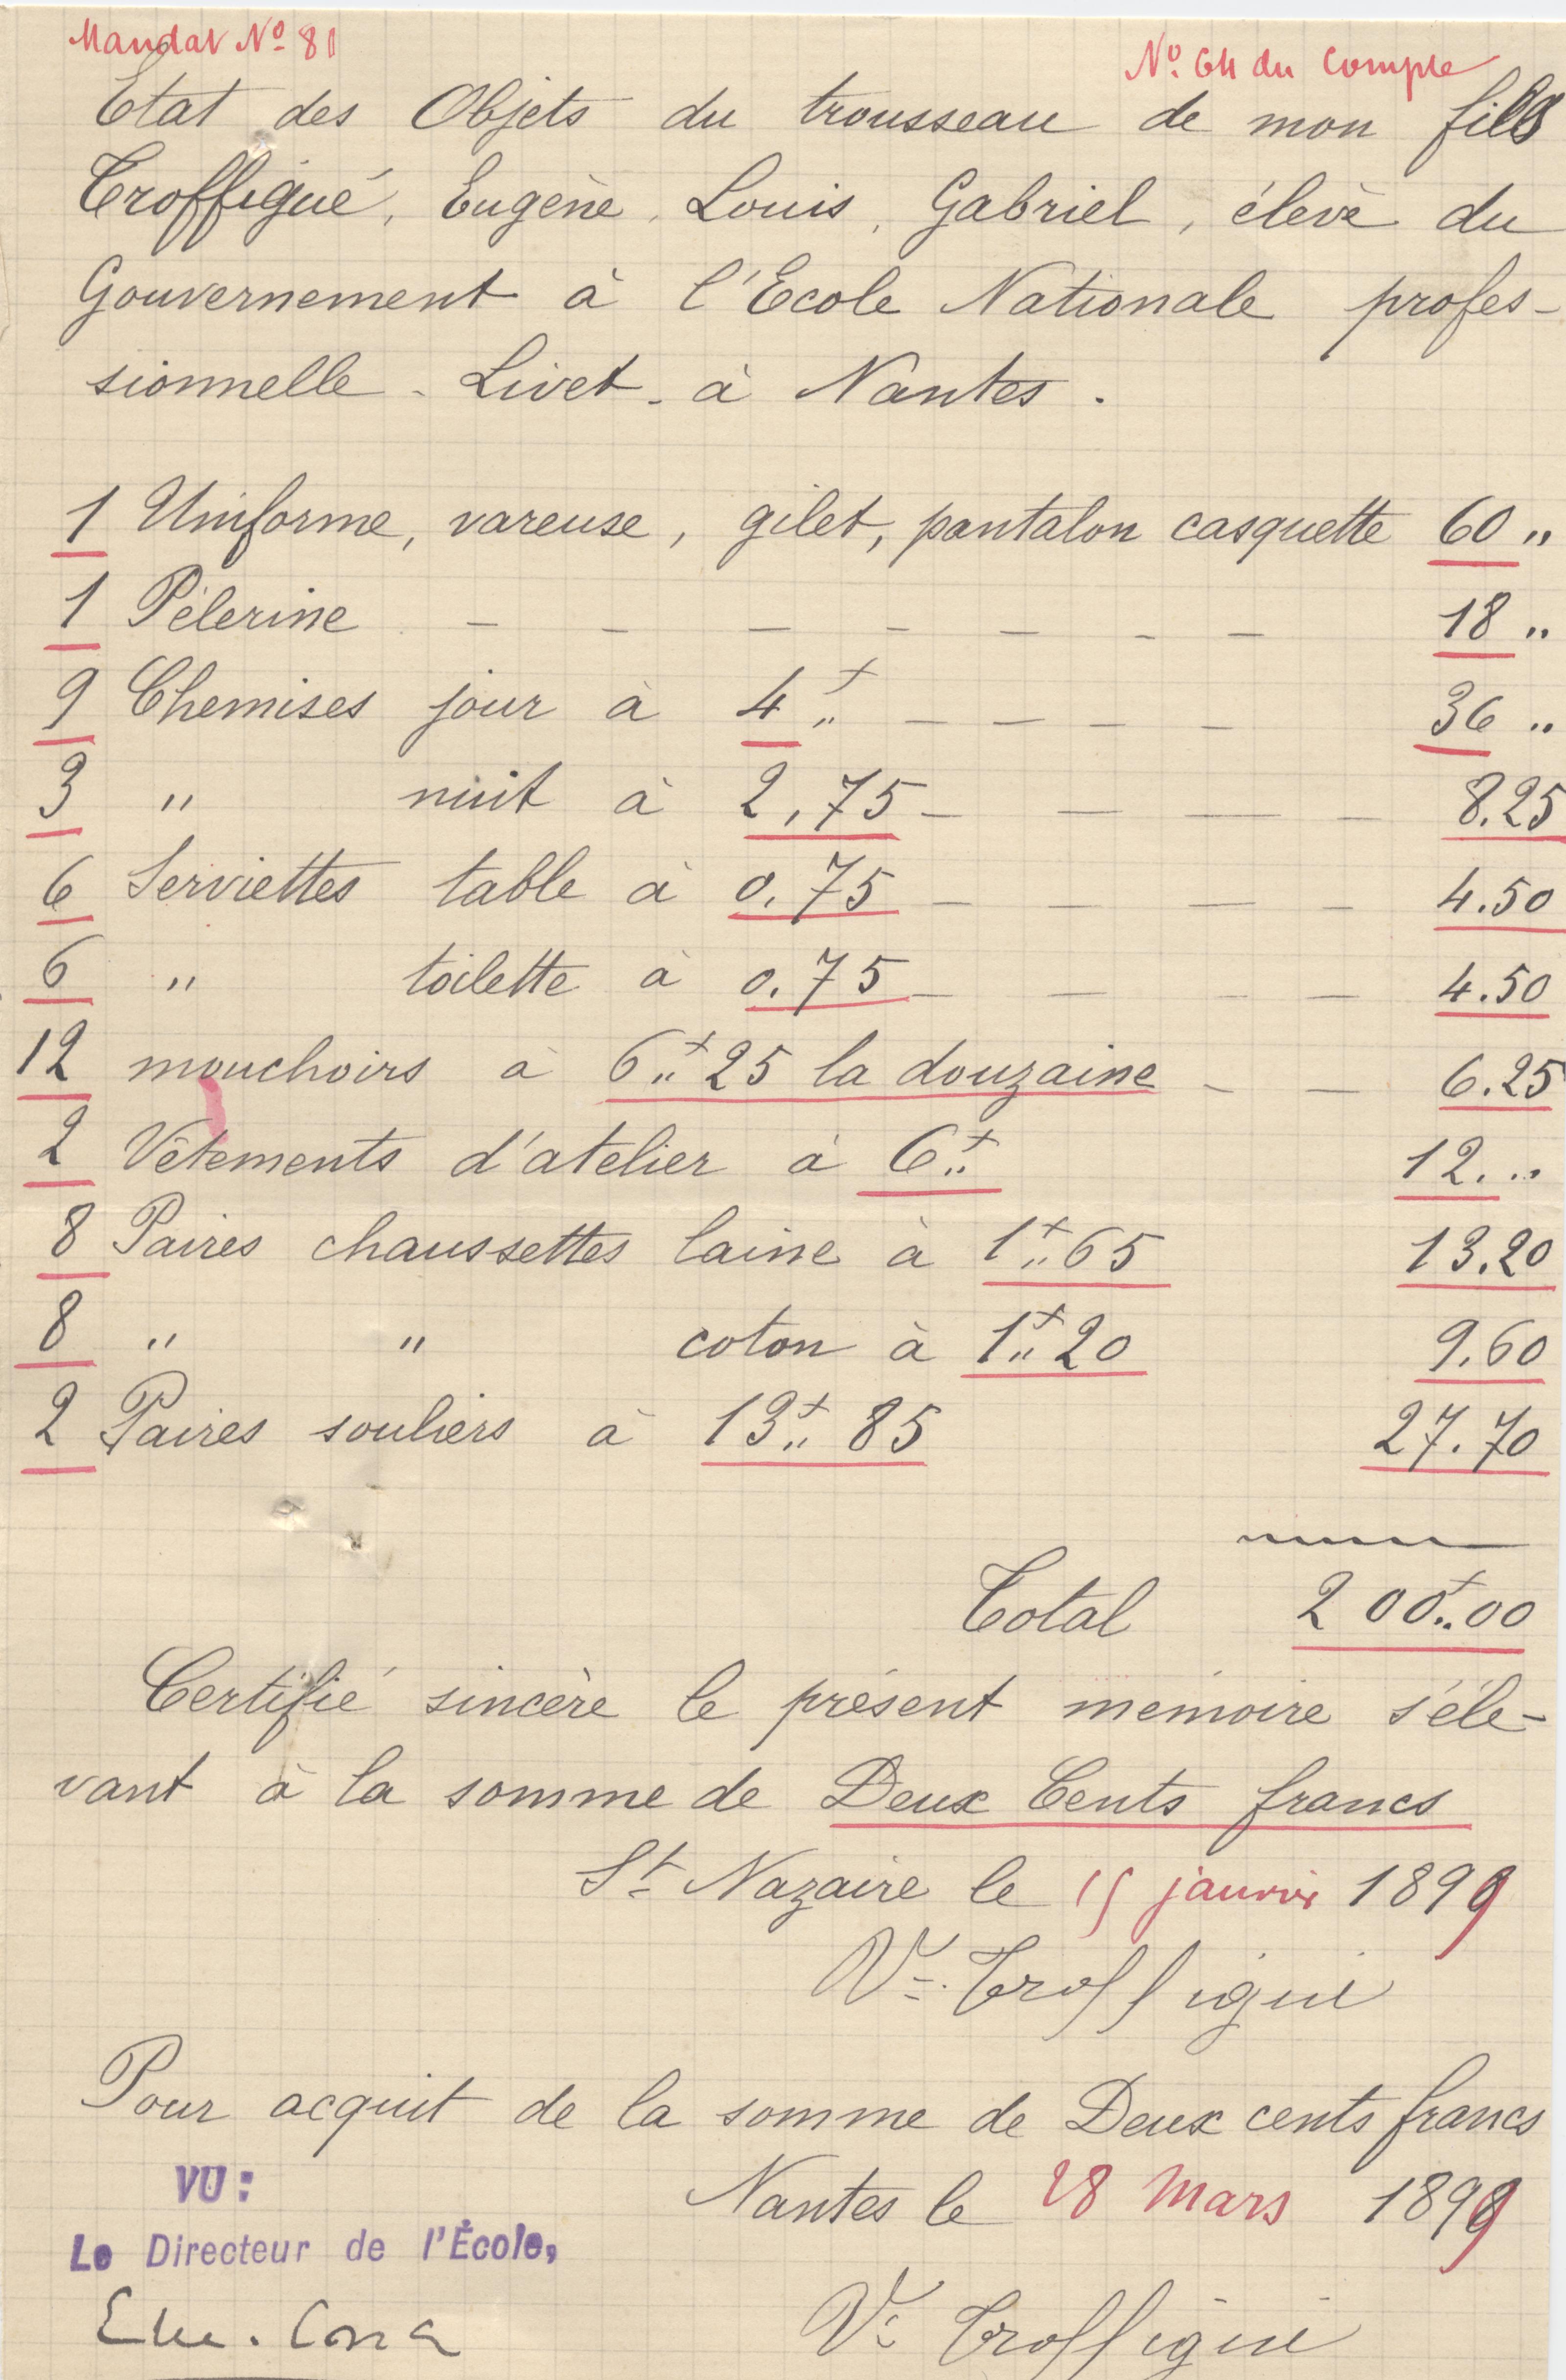 Mandat No 81
No. 64 du Compte
Etat des Objets du trousseau de mon fils
Troffigué, Eugène, Louis, Gabriel, élève du
Gouvernement à l'Ecole Nationale profes-
sionnelle - Livet - à Nantes.
1 Uniforme, vareuse, gilet, pantalon casquette 60 "
1 Pélerine - - - - - - - 18 "
9 Chemises jour à 4f " - - - - 36 "
3 " nuit à 2,75 - - - - 8.25
6 Serviettes table à 0.75 - - - - 4.50
6 " toilette à 0.75 - - - - 4.50
12 mouchoirs à 6f"25 la douzaine - - 6.25
2 Vêtements d'atelier à 6f" 12. "
8 Paires chaussettes laine à 1f"65 13.20
8 " " coton à 1f"20 9.60
2 Paires souliers à 13f" 85 27.70
Total 200f"00
Certifié sincère le présent mémoire s'éle-
vant à la somme de Deux Cents francs
St Nazaire le 15 janvier 1899
Ve Troffigué
Pour acquit de la somme de Deux cents francs
Nantes le 28 Mars 1899
VU :
Le Directeur de l'École,
Ve Troffigué